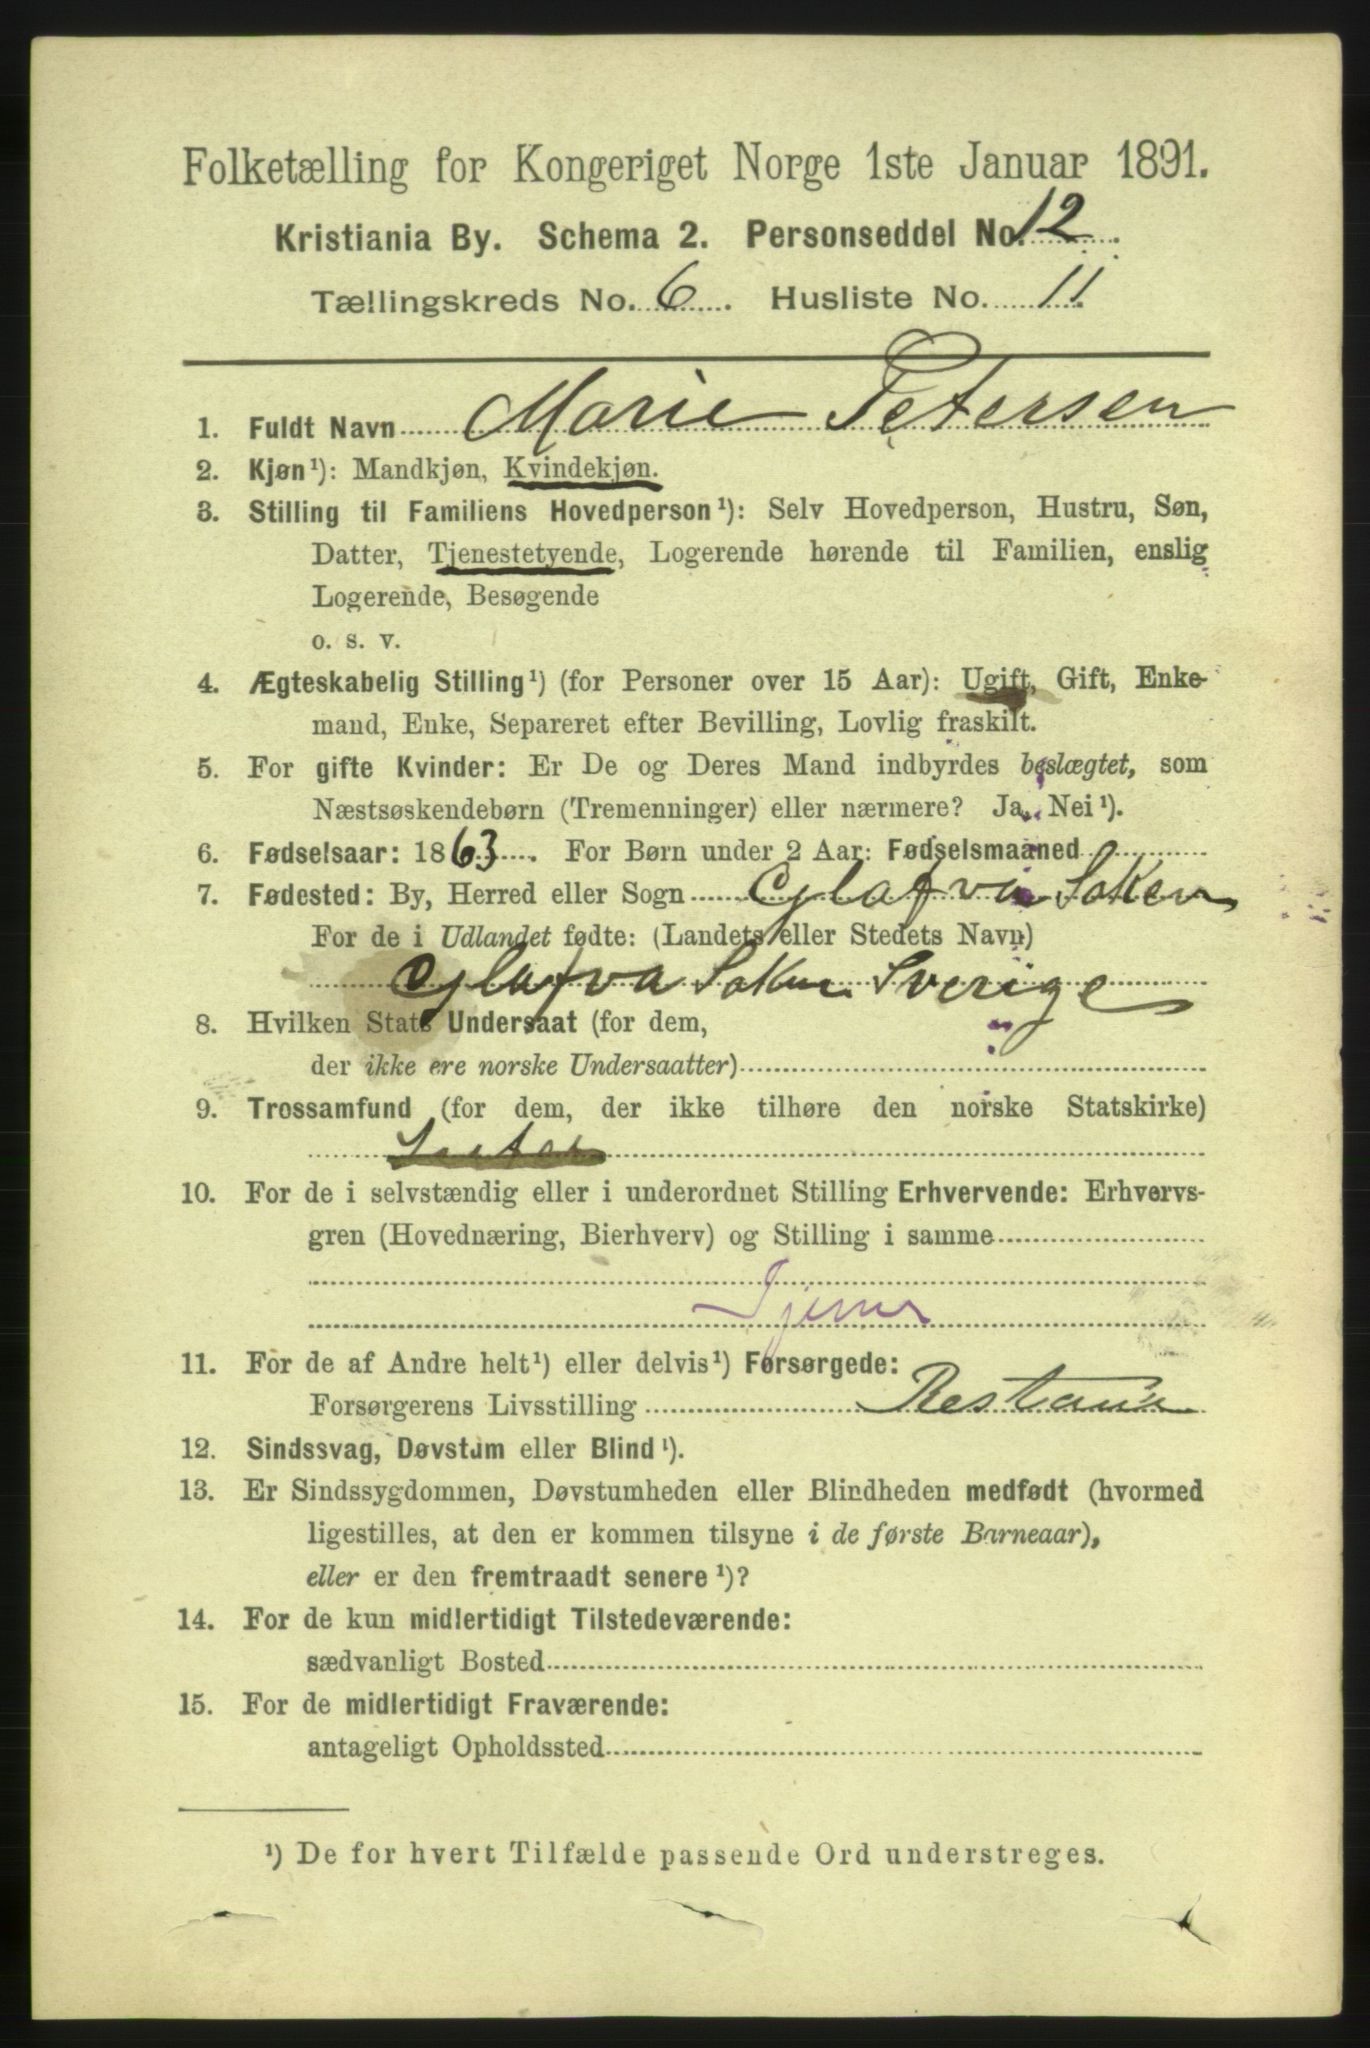 Folketælling for Kongeriget Norge 1ste Januar 1891.
Kristiania By. Schema 2. Personseddel No. 12.
Tællingskreds No. 6. Husliste No. 11.
1. Fuldt Navn Marie Petersen
2. Kjøn¹): Mandkjøn, Kvindekjøn.
3. Stilling til Familiens Hovedperson¹): Selv Hovedperson, Hustru, Søn,
Datter, Tjenestetyende, Logerende hørende til Familien, enslig
Logerende, Besøgende
o. s. v.
4. Ægteskabelig Stilling¹) (for Personer over 15 Aar): Ugift, Gift, Enke-
mand, Enke, Separeret efter Bevilling, Lovlig fraskilt.
5. For gifte Kvinder: Er De og Deres Mand indbyrdes beslægtet, som
Næstsøskendebørn (Tremenninger) eller nærmere? Ja, Nei¹).
6. Fødselsaar: 1863. For Børn under 2 Aar: Fødselsmaaned
7. Fødested: By, Herred eller Sogn Glafva Soken
For de i Udlandet fødte: (Landets eller Stedets Navn)
Glafva Soken Sverige
8. Hvilken Stats Undersaat (for dem,
der ikke ere norske Undersaatter)
9. Trossamfund (for dem, der ikke tilhøre den norske Statskirke)
10. For de i selvstændig eller i underordnet Stilling Erhvervende: Erhvervs-
gren (Hovednæring, Bierhverv) og Stilling i samme
11. For de af Andre helt¹) eller delvis¹) Forsørgede:
Forsørgerens Livsstilling
12. Sindssvag, Døvstum eller Blind¹).
13. Er Sindssygdommen, Døvstumheden eller Blindheden medfødt (hvormed
ligestilles, at den er kommen tilsyne i de første Barneaar),
eller er den fremtraadt senere¹)?
14. For de kun midlertidigt Tilstedeværende:
sædvanligt Bosted
15. For de midlertidigt Fraværende:
antageligt Opholdssted
¹) De for hvert Tilfælde passende Ord understreges.